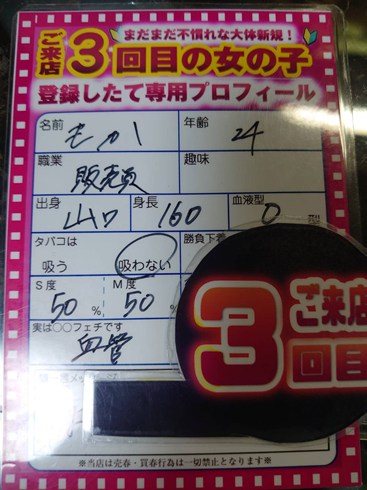 まだまだ不慣れな大体新規!
ご来店3回目の女の子
登録したて専用プロフィール
名前 もか 年齢 24
職業 販売員 趣味
出身 山口 身長 160 血液型 O
タバコは 吸う 吸わない 勝負下着
S度 50% M度 50%
実は〇〇フェチです
血管
ご来店
3回目
※当店は売春・買春行為は一切禁止となります※